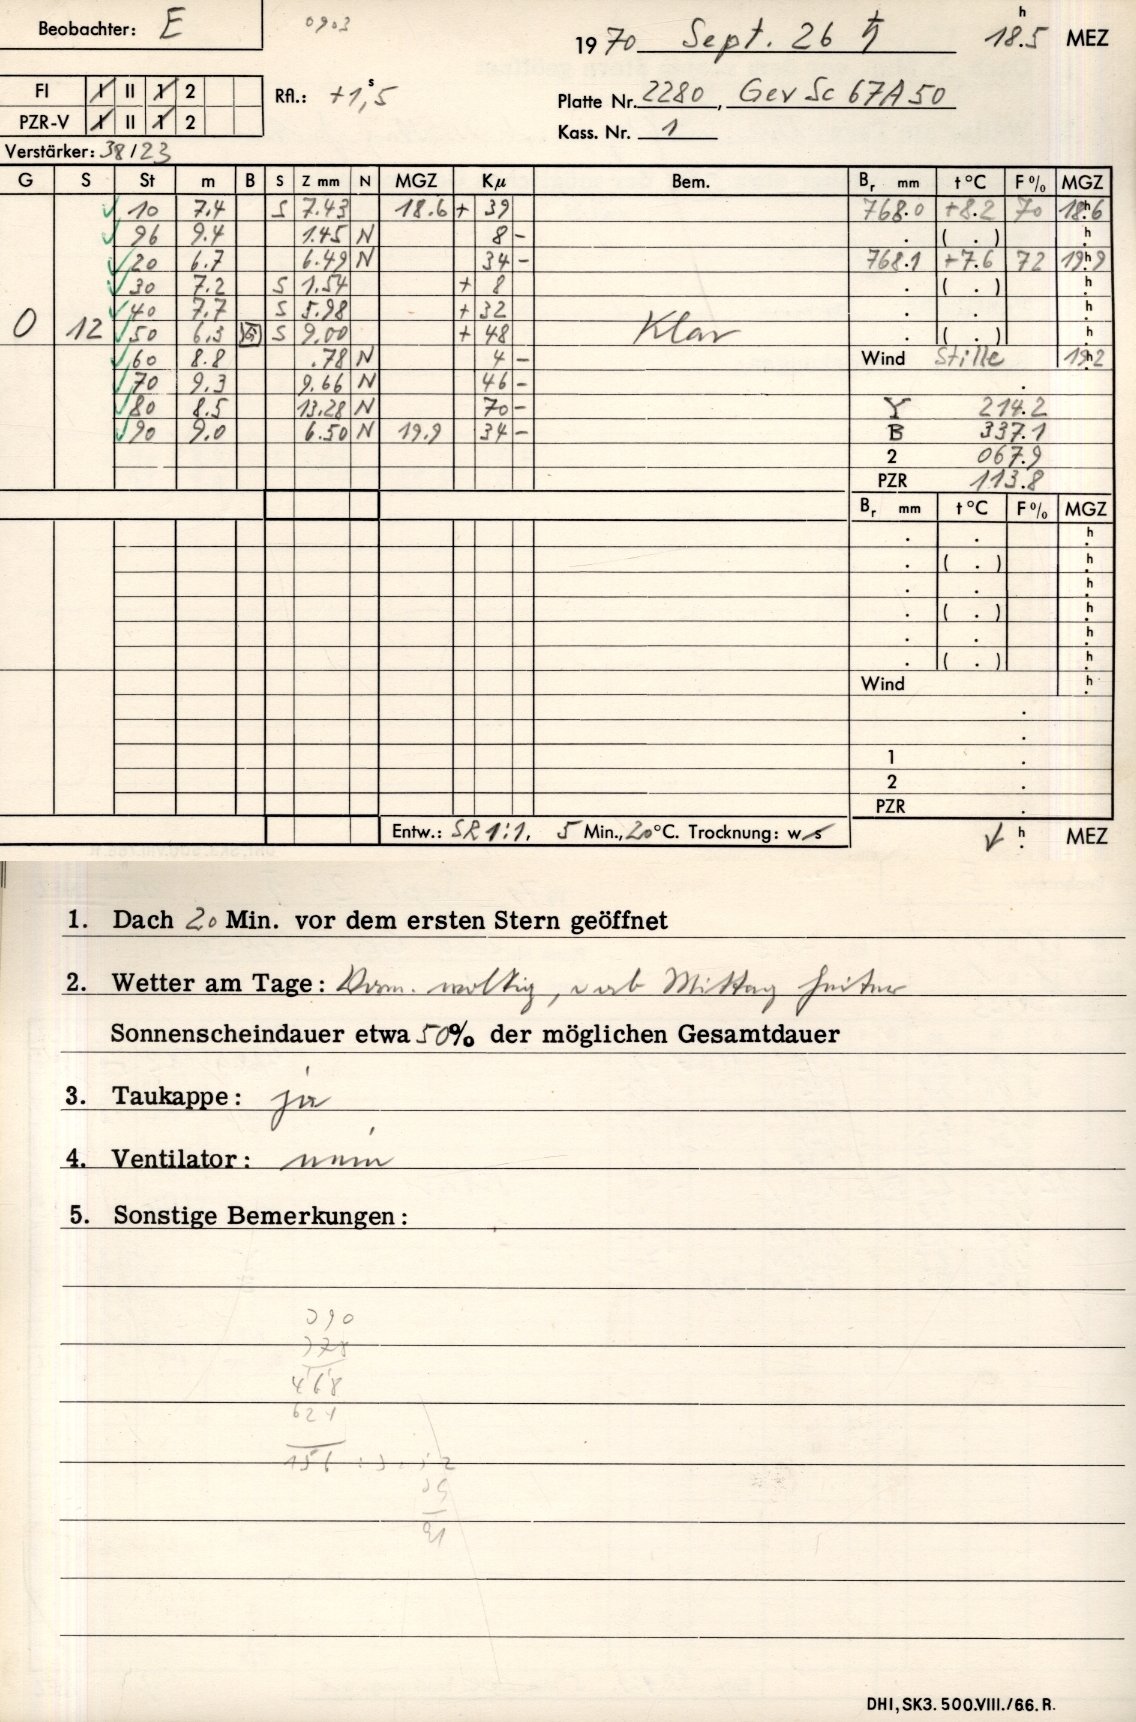 Beobachter: E
0903
1970 Sept. 26 ♄ 18.5 h MEZ
FI I II 1 2
PZR-V I II 1 2
Rfl.: +1,5 s
Platte Nr. 2280, Gev Sc 67A50
Kass. Nr. 1
Verstärker: 38/23
G S St m B S Z mm N MGZ Kμ Bem. Br mm t °C F % MGZ
✓ 10 7.4 S 7.43 18.6 + 39 768.0 +8.2 70 18h6
✓ 96 9.4 1.45 N 8 - . ( . ) h
✓ 20 6.7 6.49 N 34 - 768.1 +7.6 72 19h9
✓ 30 7.2 S 1.54 + 8 . ( . ) h
✓ 40 7.7 S 5.98 + 32 . . h
0 12 ✓ 50 6.3 S 9.00 + 48 Klar . ( . ) h
✓ 60 8.8 .78 N 4 - Wind Stille 19h2
✓ 70 9.3 9.66 N 46 - .
✓ 80 8.5 13.28 N 70 - Y 214.2
✓ 90 9.0 6.50 N 19.9 34 - B 337.1
2 067.9
PZR 113.8
Br mm t °C F % MGZ
. . h
. ( . ) h
. . h
. ( . ) h
. . h
. ( . ) h
Wind h
.
.
1 .
2 .
PZR .
Entw.: SR 1:1, 5 Min., 20 °C. Trocknung: w s
h MEZ
1. Dach 20 Min. vor dem ersten Stern geöffnet
2. Wetter am Tage: Vorm. wolkig, ab Mittag heiter
Sonnenscheindauer etwa 50% der möglichen Gesamtdauer
3. Taukappe: ja
4. Ventilator: nein
5. Sonstige Bemerkungen:
390
378
468
624
156
DHI, SK3. 500.VIII./66. R.